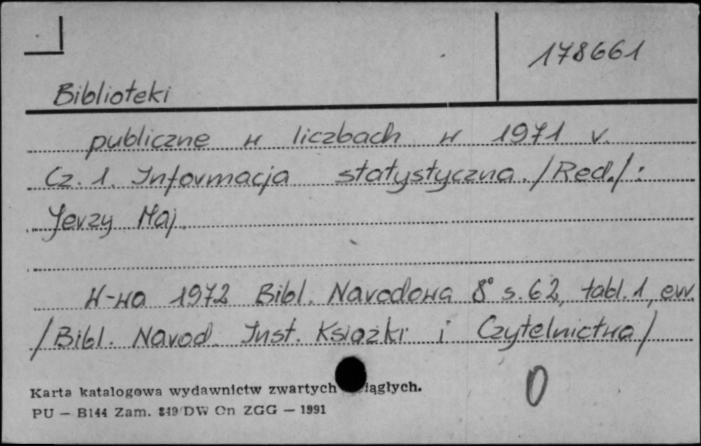 178661
Biblioteki
publiczne w liczbach w 1971 r.
Cz. 1. Informacja statystyczna. /Red./:
Jerzy Maj.
W-wa 1972 Bibl. Narodowa 8° s. 62, tabl. 1, err.
/Bibl. Narod. Inst. Książki i Czytelnictwa/
0
Karta katalogowa wydawnictw zwartych ciągłych.
PU — B144 Zam. 849/DW Cn ZGG — 1991